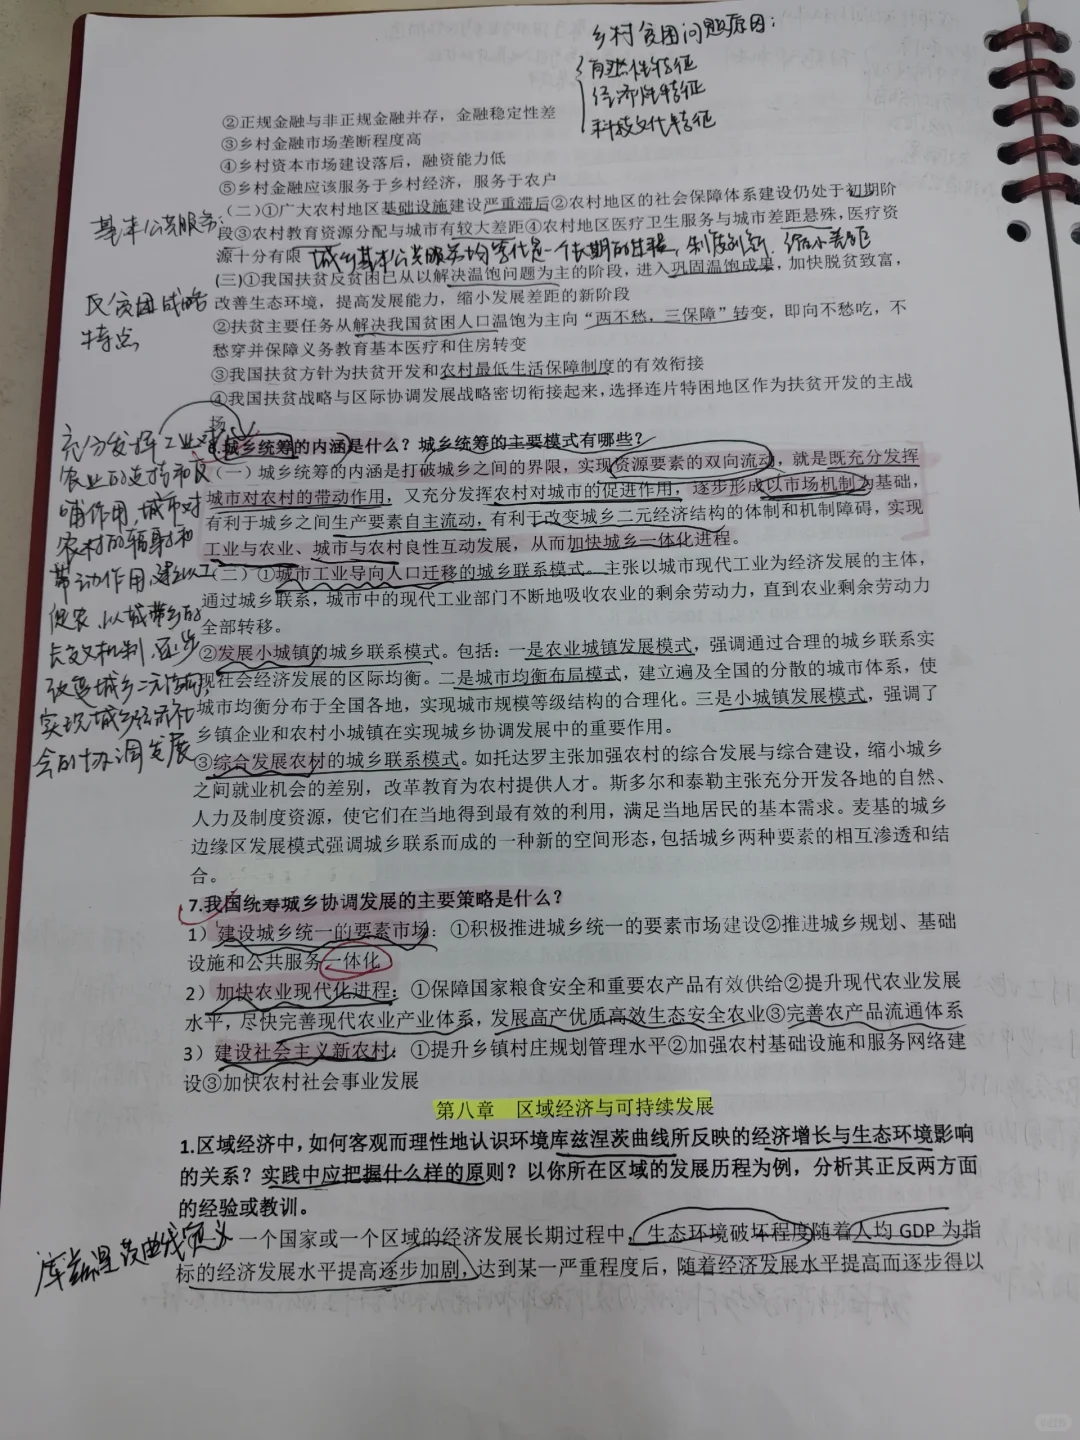 乡村贫困问题原因：
自然性特征
经济性特征
科技文化特征
②正规金融与非正规金融并存，金融稳定性差
③乡村金融市场垄断程度高
④乡村资本市场建设落后，融资能力低
⑤乡村金融应该服务于乡村经济，服务于农户
基本公共服务：
（二）①广大农村地区基础设施建设严重滞后②农村地区的社会保障体系建设仍处于初期阶
段③农村教育资源分配与城市有较大差距④农村地区医疗卫生服务与城市差距悬殊，医疗资
源十分有限
城乡基本公共服务均等化是一个长期的过程，制度创新，缩小差距
反贫困战略
特点
(三)①我国扶贫反贫困已从以解决温饱问题为主的阶段，进入巩固温饱成果，加快脱贫致富，
改善生态环境，提高发展能力，缩小发展差距的新阶段
②扶贫主要任务从解决我国贫困人口温饱为主向“两不愁，三保障”转变，即向不愁吃，不
愁穿并保障义务教育基本医疗和住房转变
③我国扶贫方针为扶贫开发和农村最低生活保障制度的有效衔接
④我国扶贫战略与区际协调发展战略密切衔接起来，选择连片特困地区作为扶贫开发的主战
场
充分发挥工业对
农业的支持和反
哺作用，城市对
农村的辐射和
带动作用，建立以工
促农、以城带乡的
长效机制，逐步
改变城乡二元结构，
实现城乡经济社
会的协调发展
6.城乡统筹的内涵是什么？城乡统筹的主要模式有哪些？
（一）城乡统筹的内涵是打破城乡之间的界限，实现资源要素的双向流动，就是既充分发挥
城市对农村的带动作用，又充分发挥农村对城市的促进作用，逐步形成以市场机制为基础，
有利于城乡之间生产要素自主流动，有利于改变城乡二元经济结构的体制和机制障碍，实现
工业与农业、城市与农村良性互动发展，从而加快城乡一体化进程。
（二）①城市工业导向人口迁移的城乡联系模式。主张以城市现代工业为经济发展的主体，
通过城乡联系，城市中的现代工业部门不断地吸收农业的剩余劳动力，直到农业剩余劳动力
全部转移。
②发展小城镇的城乡联系模式。包括：一是农业城镇发展模式，强调通过合理的城乡联系实
现社会经济发展的区际均衡。二是城市均衡布局模式，建立遍及全国的分散的城市体系，使
城市均衡分布于全国各地，实现城市规模等级结构的合理化。三是小城镇发展模式，强调了
乡镇企业和农村小城镇在实现城乡协调发展中的重要作用。
③综合发展农村的城乡联系模式。如托达罗主张加强农村的综合发展与综合建设，缩小城乡
之间就业机会的差别，改革教育为农村提供人才。斯多尔和泰勒主张充分开发各地的自然、
人力及制度资源，使它们在当地得到最有效的利用，满足当地居民的基本需求。麦基的城乡
边缘区发展模式强调城乡联系而成的一种新的空间形态，包括城乡两种要素的相互渗透和结
合。
7.我国统筹城乡协调发展的主要策略是什么？
1）建设城乡统一的要素市场：①积极推进城乡统一的要素市场建设②推进城乡规划、基础
设施和公共服务一体化
2）加快农业现代化进程：①保障国家粮食安全和重要农产品有效供给②提升现代农业发展
水平，尽快完善现代农业产业体系，发展高产优质高效生态安全农业③完善农产品流通体系
3）建设社会主义新农村：①提升乡镇村庄规划管理水平②加强农村基础设施和服务网络建
设③加快农村社会事业发展
第八章 区域经济与可持续发展
1.区域经济中，如何客观而理性地认识环境库兹涅茨曲线所反映的经济增长与生态环境影响
的关系？实践中应把握什么样的原则？以你所在区域的发展历程为例，分析其正反两方面
的经验或教训。
库兹涅茨曲线定义
一个国家或一个区域的经济发展长期过程中，生态环境破坏程度随着人均 GDP 为指
标的经济发展水平提高逐步加剧，达到某一严重程度后，随着经济发展水平提高而逐步得以